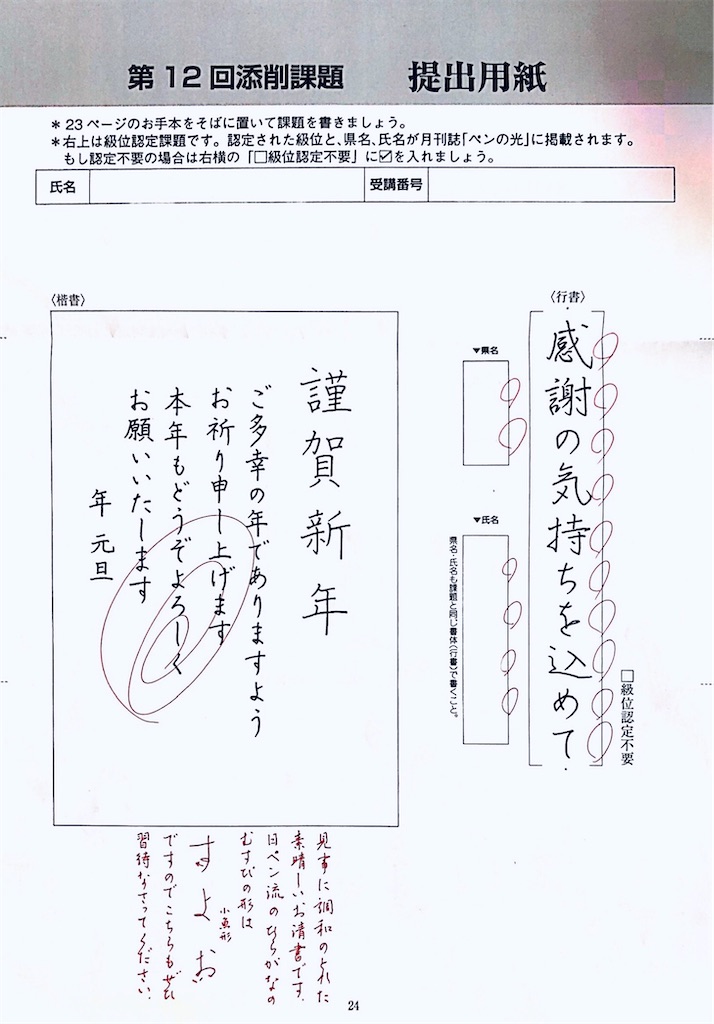 第12回添削課題　提出用紙
＊23ページのお手本をそばに置いて課題を書きましょう。
＊右上は級位認定課題です。認定された級位と、県名、氏名が月刊誌「ペンの光」に掲載されます。
もし認定不要の場合は右横の「□級位認定不要」に☑を入れましょう。
氏名
受講番号
〈行書〉
感謝の気持ちを込めて
□級位認定不要
▼県名
▼氏名
県名・氏名も課題と同じ書体〈行書〉で書くこと。
〈楷書〉
謹賀新年
ご多幸の年でありますよう
お祈り申し上げます
本年もどうぞよろしく
お願いいたします
年 元旦
見事に調和のとれた
素晴しいお清書です。
日ペン流のひらがなの
むすびの形は
小魚形
すよお
ですのでこちらもぜひ
習得なさってください。
24